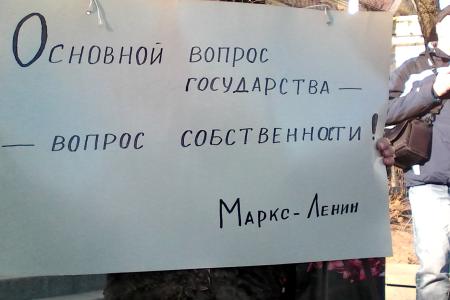 Основной вопрос
государства —
— вопрос собственности!
Маркс-Ленин